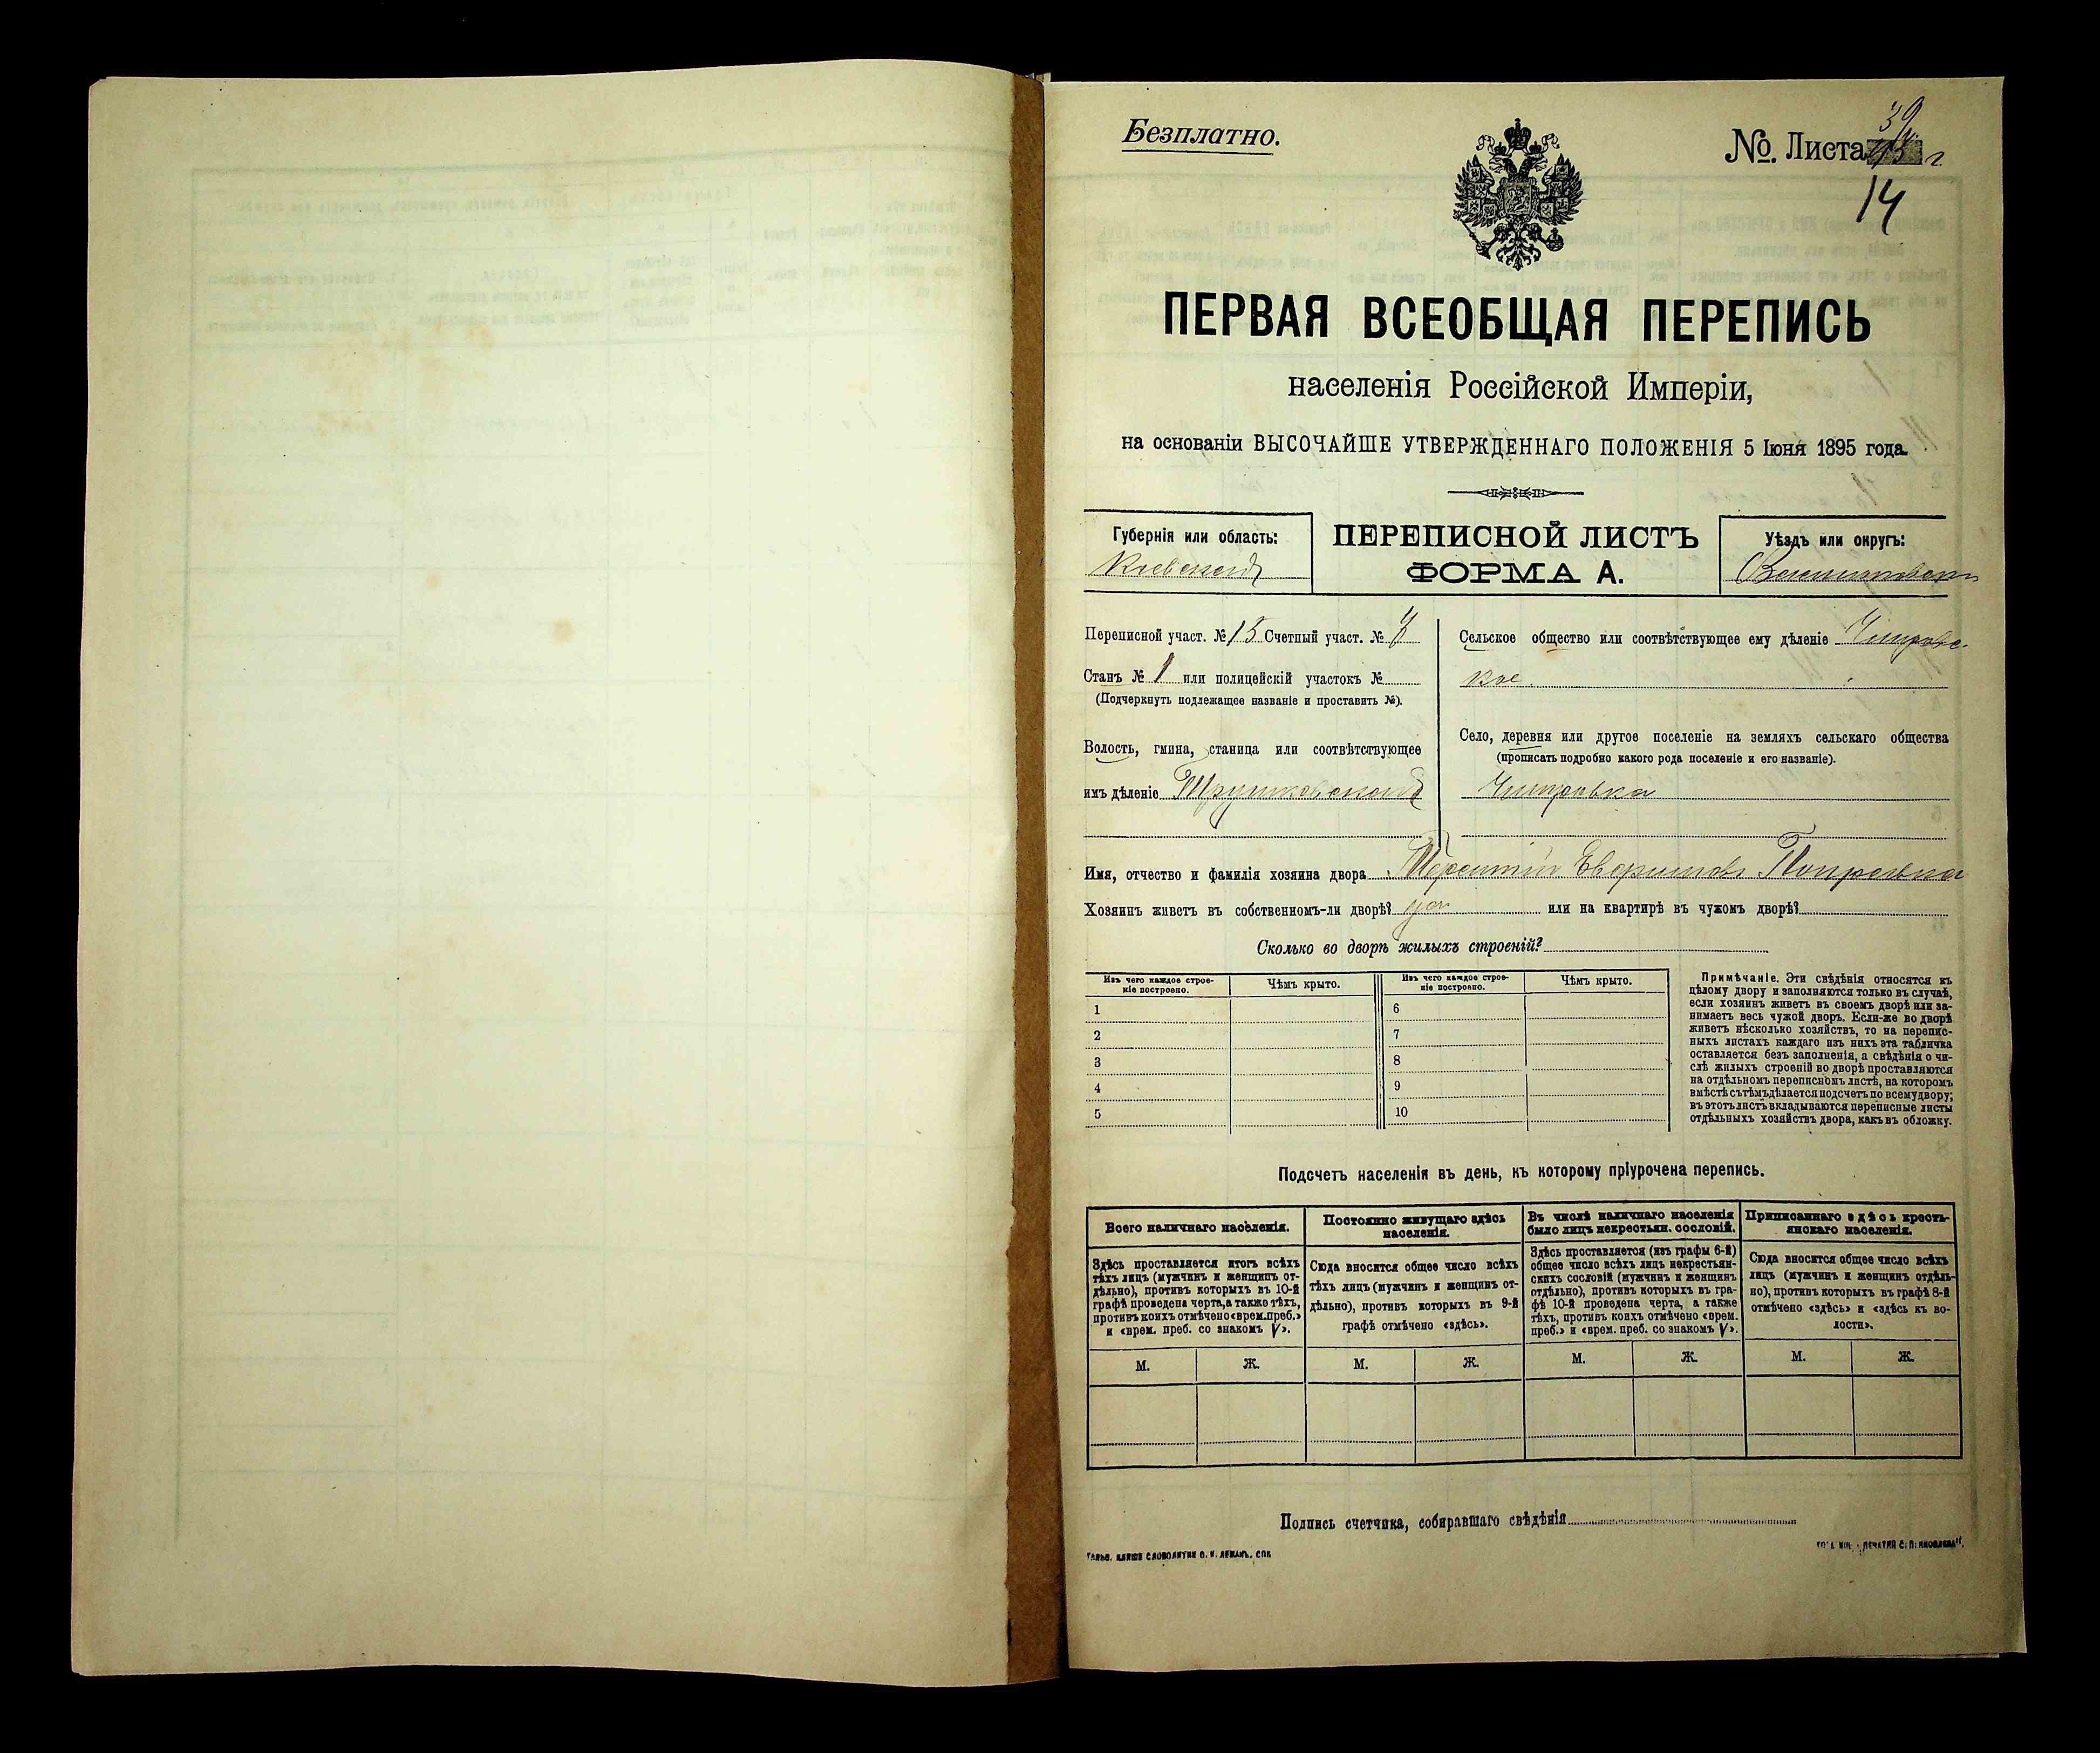 Безплатно.
№. Листа
14
ПЕРВАЯ ВСЕОБЩАЯ ПЕРЕПИСЬ
населенія Россійской Имперіи,
на основаніи ВЫСОЧАЙШЕ УТВЕРЖДЕННАГО ПОЛОЖЕНІЯ 5 Іюня 1895 года.
Губернія или область:
Кіевская
ПЕРЕПИСНОЙ ЛИСТЪ
ФОРМА А.
Уѣздъ или округъ:
Переписной участ. № 15 Счетный участ. №
Станъ № 1 или полицейскій участокъ №
(Подчеркнуть подлежащее названіе и проставить №).
Волость, гмина, станица или соотвѣтствующее
имъ дѣленіе
Сельское общество или соотвѣтствующее ему дѣленіе Чипровс-
кое
Село, деревня или другое поселеніе на земляхъ сельскаго общества
(прописать подробно какого рода поселеніе и его названіе).
Чипровка
Имя, отчество и фамилія хозяина двора
Хозяинъ живетъ въ собственномъ-ли дворѣ? да или на квартирѣ въ чужомъ дворѣ?
Сколько во дворѣ жилыхъ строеній?
Изъ чего каждое строе-
ніе построено.
Чѣмъ крыто.
Изъ чего каждое строе-
ніе построено.
Чѣмъ крыто.
1 6
2 7
3 8
4 9
5 10
Примѣчаніе. Эти свѣдѣнія относятся къ
цѣлому двору и заполняются только въ случаѣ,
если хозяинъ живетъ въ своемъ дворѣ или за-
нимаетъ весь чужой дворъ. Если-же во дворѣ
живетъ нѣсколько хозяйствъ, то на перепис-
ныхъ листахъ каждаго изъ нихъ эта табличка
оставляется безъ заполненія, а свѣдѣнія о чи-
слѣ жилыхъ строеній во дворѣ проставляются
на отдѣльномъ переписномъ листѣ, на которомъ
вмѣстѣ съ тѣмъ дѣлается подсчетъ по всему двору;
въ этотъ листъ вкладываются переписные листы
отдѣльныхъ хозяйствъ двора, какъ въ обложку.
Подсчетъ населенія въ день, къ которому пріурочена перепись.
Всего наличнаго населенія.
Здѣсь проставляется итогъ всѣхъ
тѣхъ лицъ (мужчинъ и женщинъ от-
дѣльно), противъ которыхъ въ 10-й
графѣ проведена черта, а также тѣхъ,
противъ коихъ отмѣчено «врем. преб.»
и «врем. преб. со знакомъ V».
Постоянно живущаго здѣсь
населенія.
Сюда вносится общее число всѣхъ
тѣхъ лицъ (мужчинъ и женщинъ от-
дѣльно), противъ которыхъ въ 9-й
графѣ отмѣчено «здѣсь».
Въ числѣ наличнаго населенія
было лицъ некрестьян. сословій.
Здѣсь проставляется (изъ графы 6-й)
общее число всѣхъ лицъ некрестьян-
скихъ сословій (мужчинъ и женщинъ
отдѣльно), противъ которыхъ въ гра-
фѣ 10-й проведена черта, а также
тѣхъ, противъ коихъ отмѣчено «врем.
преб.» и «врем. преб. со знакомъ V».
Приписаннаго здѣсь кресть-
янскаго населенія.
Сюда вносится общее число всѣхъ
лицъ (мужчинъ и женщинъ отдѣль-
но), противъ которыхъ въ графѣ 8-й
отмѣчено «здѣсь» и «здѣсь къ во-
лости».
М. Ж. М. Ж. М. Ж. М. Ж.
Подпись счетчика, собиравшаго свѣдѣнія